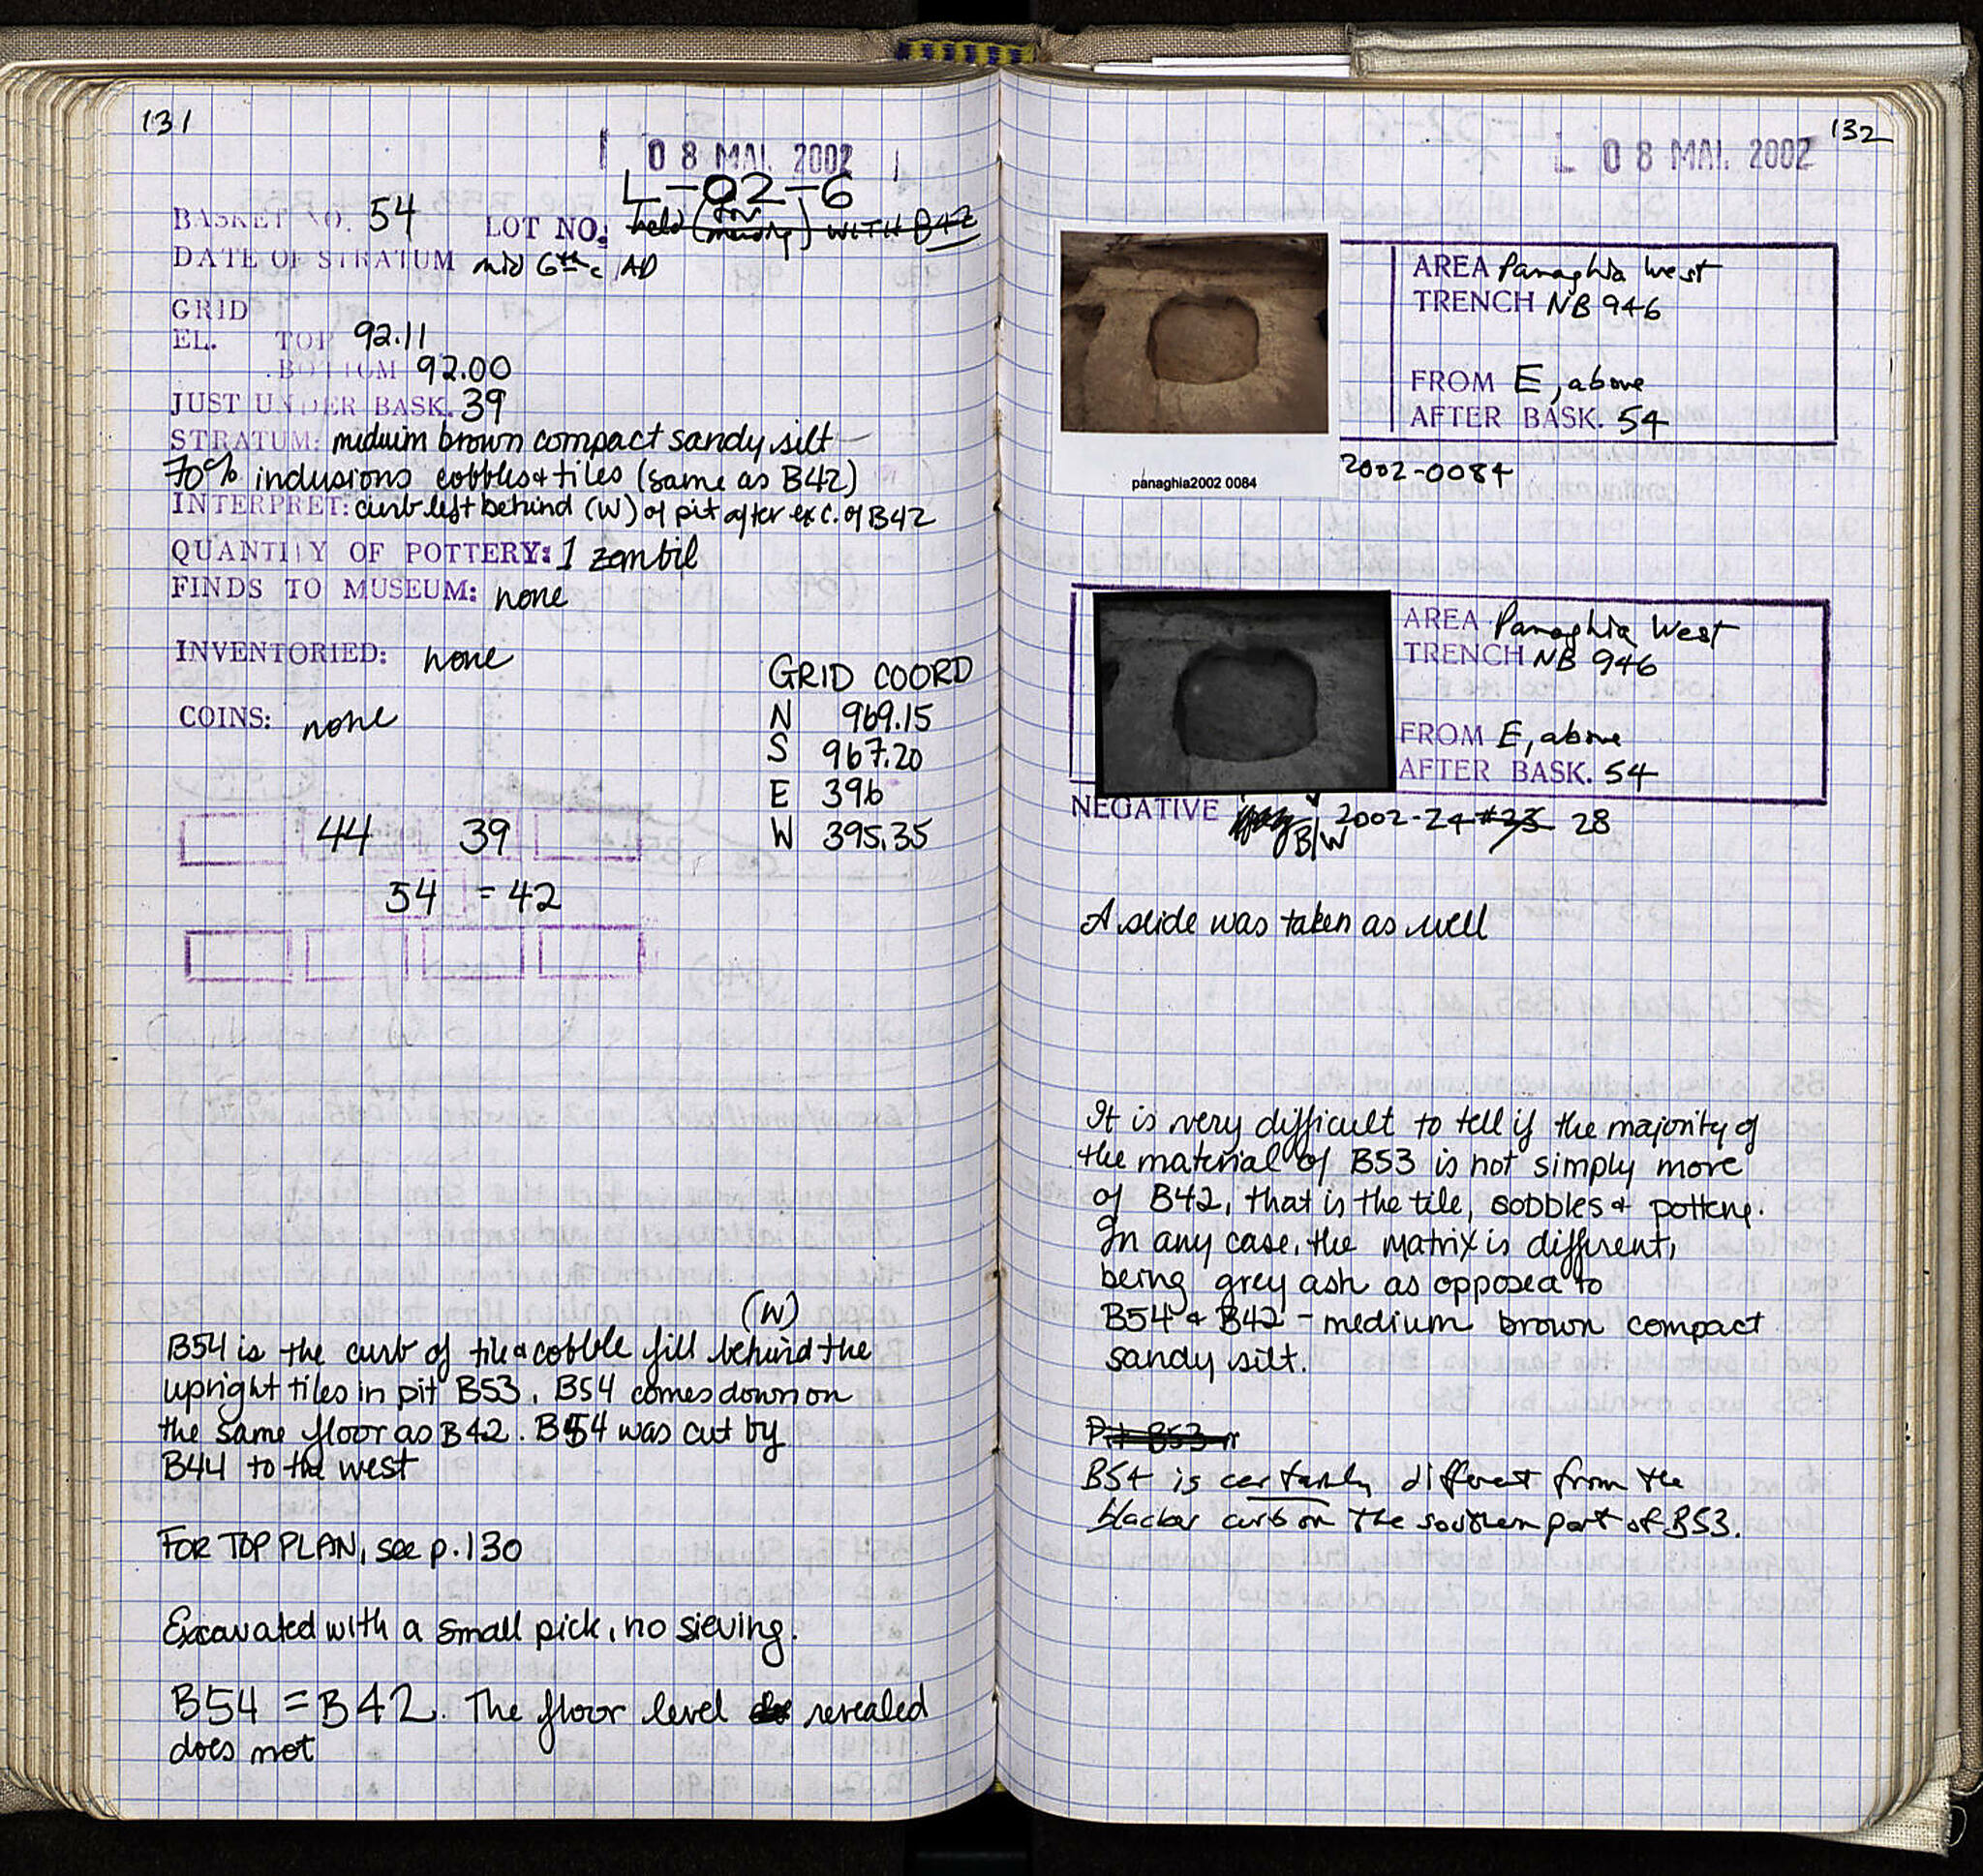 131
08 MAI. 2002
L-02-6
BASKET NO. 54 LOT NO: held (for memory) WITH B42
DATE OF STRATUM mid 6th c AD
GRID
EL. TOP 92.11
BOTTOM 92.00
JUST UNDER BASK. 39
STRATUM: meduim brown compact sandy silt
70% inclusions cobbles & tiles (same as B42)
INTERPRET: curb left behind (W) of pit after exc. of B42
QUANTITY OF POTTERY: 1 zembil
FINDS TO MUSEUM: none
INVENTORIED: none
COINS: none
GRID COORD
N 969.15
S 967.20
E 396
W 395.35
44 39
54 = 42
(W)
B54 is the curb of tile & cobble fill behind the
upright tiles in pit B53. B54 comes down on
the same floor as B42. B54 was cut by
B44 to the west
FOR TOP PLAN, see p. 130
Excavated with a small pick, no sieving.
B54 = B42. The floor level revealed
does not
132
08 MAI. 2002
panaghia2002 0084
AREA Panaghia West
TRENCH NB 946
FROM E, above
AFTER BASK. 54
2002-0084
AREA Panaghia West
TRENCH NB 946
FROM E, above
AFTER BASK. 54
NEGATIVE B/W 2002-24 #23 28
A slide was taken as well
It is very difficult to tell if the majority of
the material of B53 is not simply more
of B42, that is the tile, cobbles & pottery.
In any case, the matrix is different,
being grey ash as opposed to
B54 & B42 - medium brown compact
sandy silt.
Pit B53 is
B54 is certainly different from the
blacker curb on the southern part of B53.